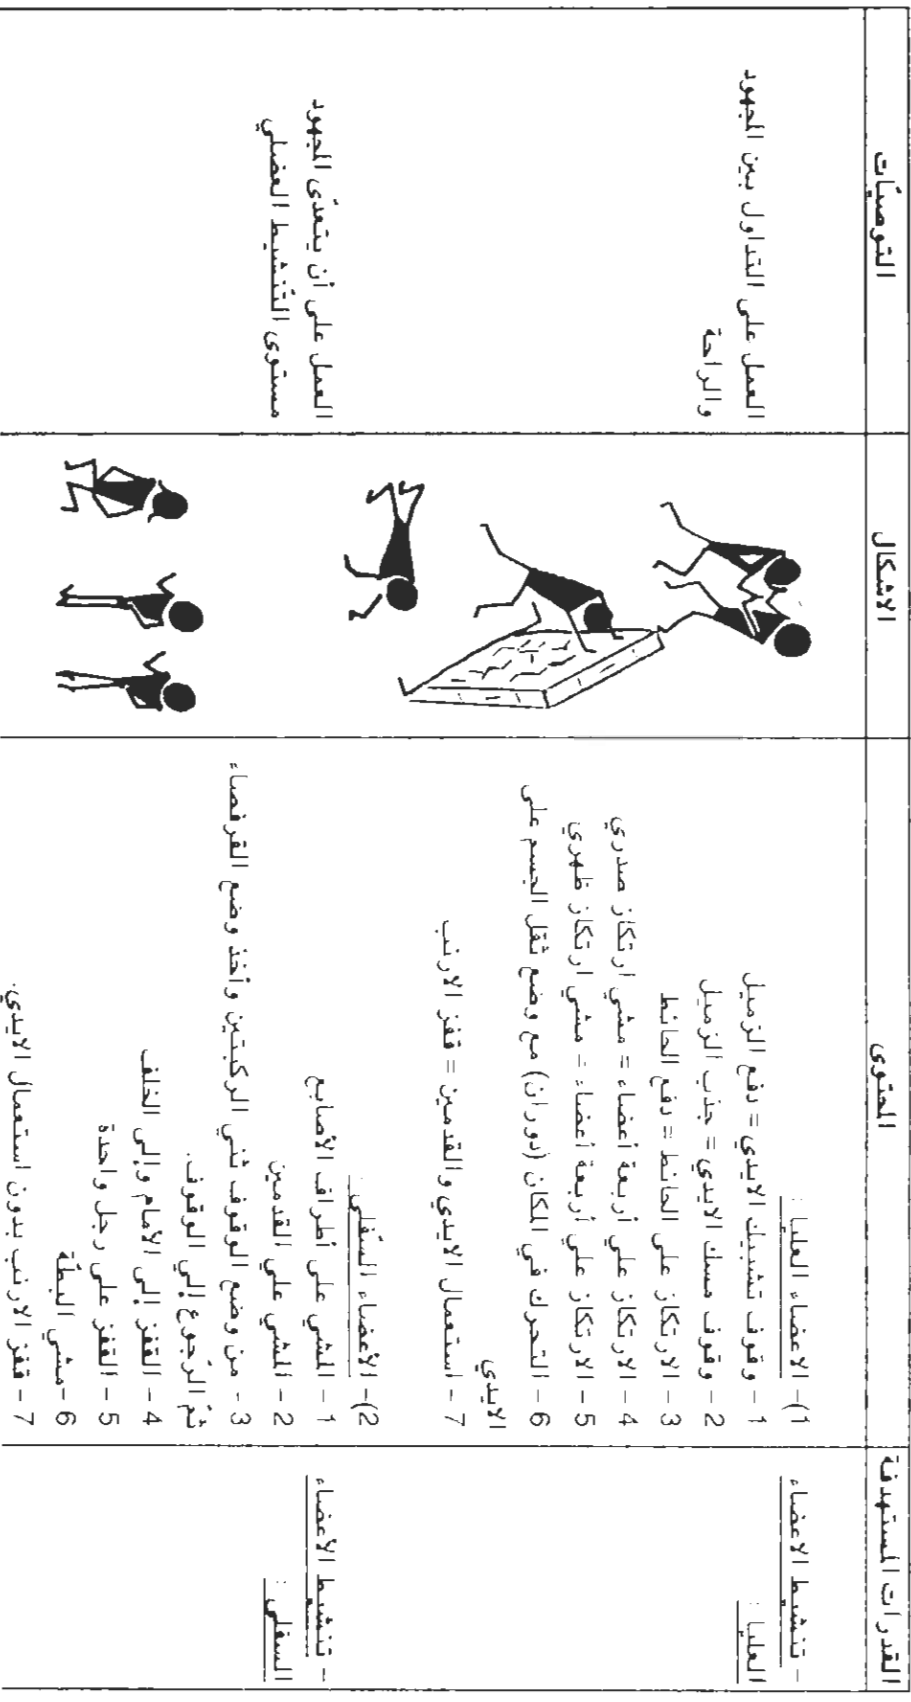 القدرات المستهدفة
المحتوى
الاشكال
التوصيّات
- تنشيط الاعضاء
العليا :
1)- الاعضاء العليا :
1 - وقوف تشبيك الايدي = دفع الزميل
2 - وقوف مسك الايدي = جذب الزميل
3 - الارتكاز على الحائط = دفع الحائط
4 - الارتكاز علي أربعة أعضاء = مشي ارتكاز صدري
5 - الارتكاز علي أربعة أعضاء = مشي ارتكاز ظهري
6 - التحرك في المكان (دوران) مع وضع ثقل الجسم على
الايدي
7 - استعمال الايدي والقدمين = قفز الارنب
العمل على التداول بين المجهود
والراحة
- تنشيط الأعضاء
السفلى :
2)- الأعضاء السّفلى :
1 - المشي على أطراف الأصابع
2 - المشي علي القدمين
3 - من وضع الوقوف ثني الركبتين وأخذ وضع القرفصاء
ثمّ الرّجوع إلي الوقوف.
4 - القفز إلى الأمام وإلى الخلف
5 - القفز على رجل واحدة
6 -مشي البطّة
7 - قفز الارنب بدون استعمال الايدي.
العمل على أن يتعدّى المجهود
مستوى التّنشيط العضلي